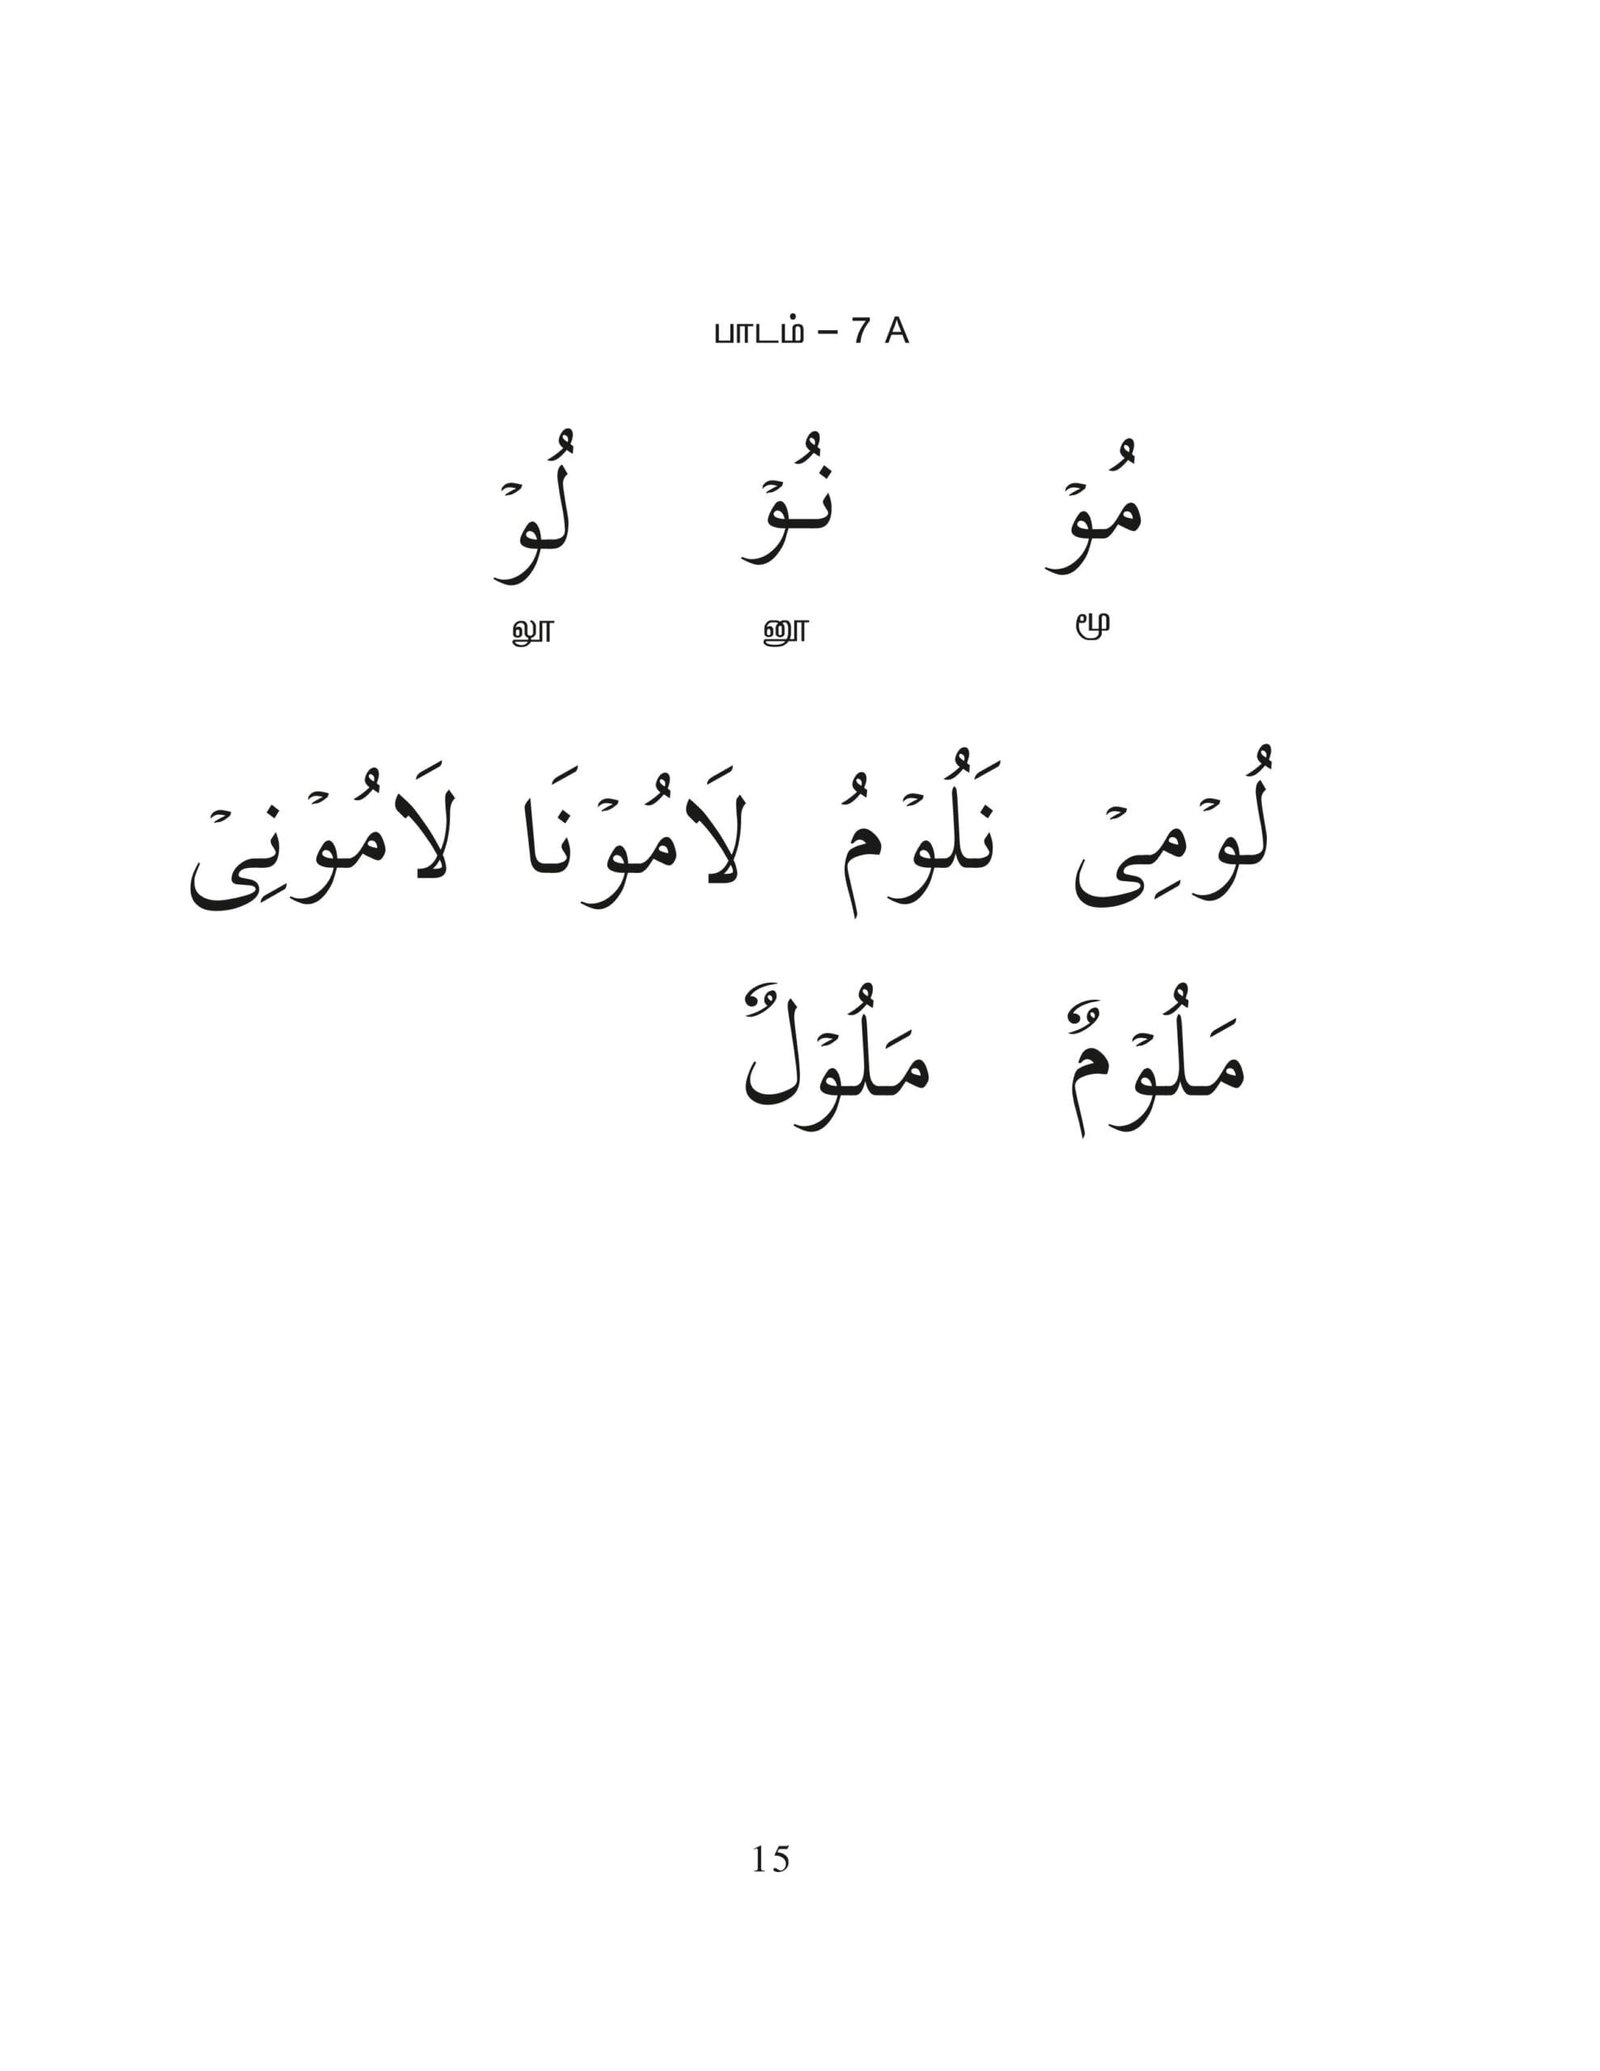 பாடம் – 7 A
مُوْ نُوْ لُوْ
மூ னூ லூ
لُوْمِىْ نَلُوْمُ لَامُوْنَا لَامُوْنِىْ
مَلُوْمٌ مَلُوْلٌ
15